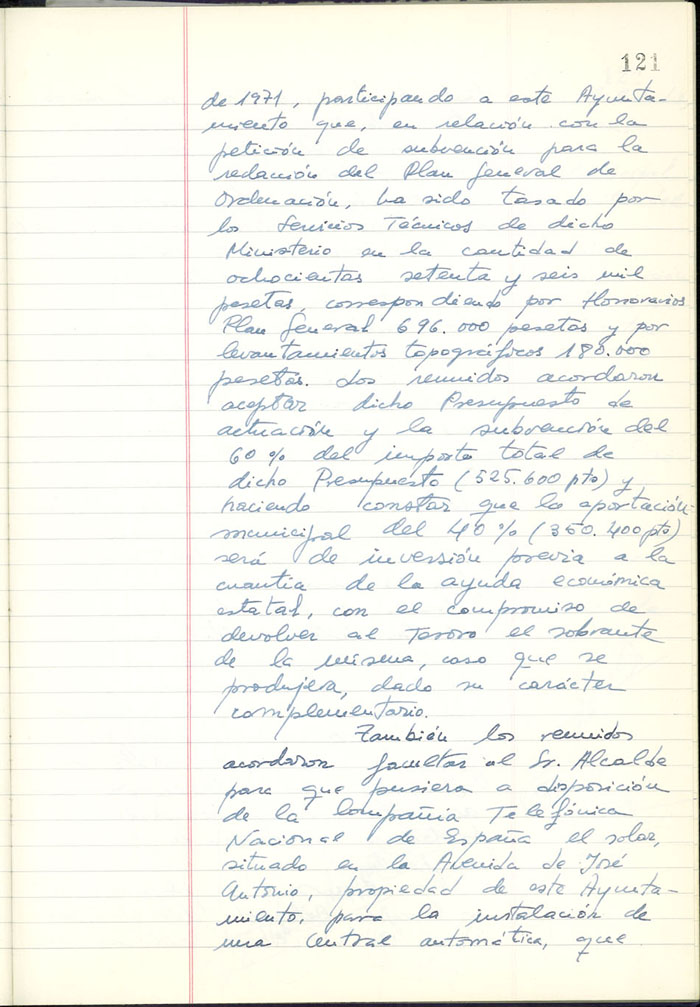 121
de 1971, participando a este Ayunta-
miento que, en relación con la
petición de subvención para la
redacción del Plan General de
Ordenación, ha sido tasado por
los Servicios Técnicos de dicho
Ministerio en la cantidad de
ochocientas setenta y seis mil
pesetas, correspondiendo por Honorarios
Plan General 696.000 pesetas y por
levantamientos topográficos 180.000
pesetas. Los reunidos acordaron
aceptar dicho Presupuesto de
actuación y la subvención del
60% del importe total de
dicho Presupuesto (525.600 pts) y
haciendo constar que la aportación
municipal del 40% (350.400 pts)
será de inversión previa a la
cuantia de la ayuda económica
estatal, con el compromiso de
devolver al Tesoro el sobrante
de la misma, caso que se
produjera, dado su carácter
complementario.
También los reunidos
acordaron facultar al Sr. Alcalde
para que pusiera a disposición
de la Compañia Telefónica
Nacional de España el solar,
situado en la Avenida de José
Antonio, propiedad de este Ayunta-
miento, para la instalación de
una Central automática, que